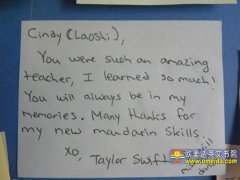 Cindy (Laoshi),
You were such an amazing
teacher, I learned so much!
You will always be in my
memories. Many thanks for
my new mandarin skills.
xo,
Taylor Swift
www.omeida.com